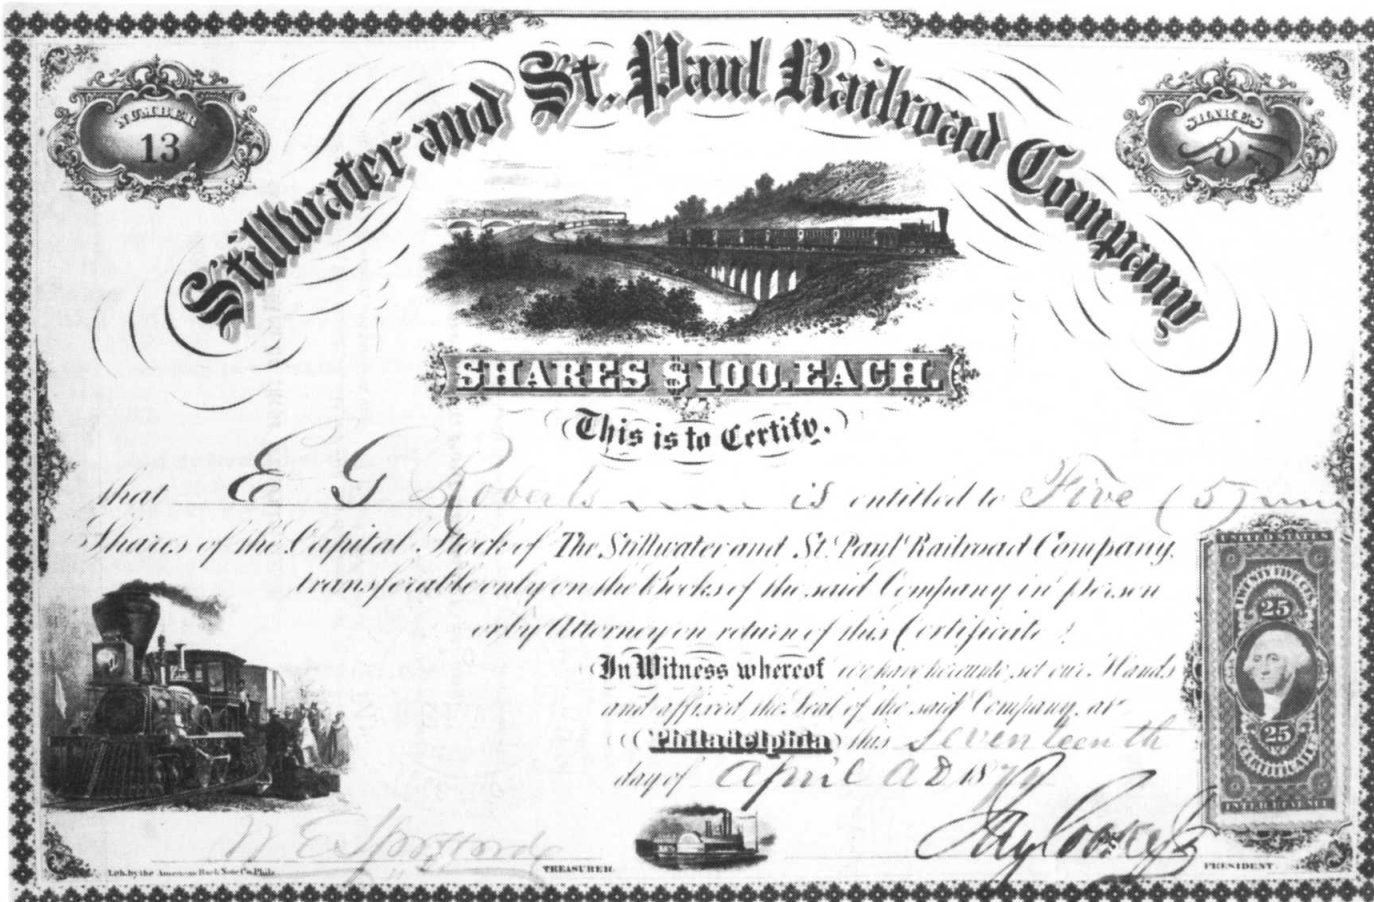 NUMBER
13
Stillwater and St. Paul Railroad Company
SHARES
5
SHARES $100. EACH.
This is to Certify.
that E G Roberts is entitled to Five (5)
Shares of the Capital Stock of The Stillwater and St. Paul Railroad Company
transferable only on the Books of the said Company in person
or by Attorney on return of this Certificate.
In Witness whereof we have hereunto set our Hands
and affixed the Seal of the said Company, at
Philadelphia this Seventeenth
day of April A D 18
UNITED STATES
TWENTY FIVE CENTS
25
25
CERTIFICATE
INTER. REVENUE
Jay Cooke Jr
TREASURER.
PRESIDENT.
Lith. by the American Bank Note Co. Phila.